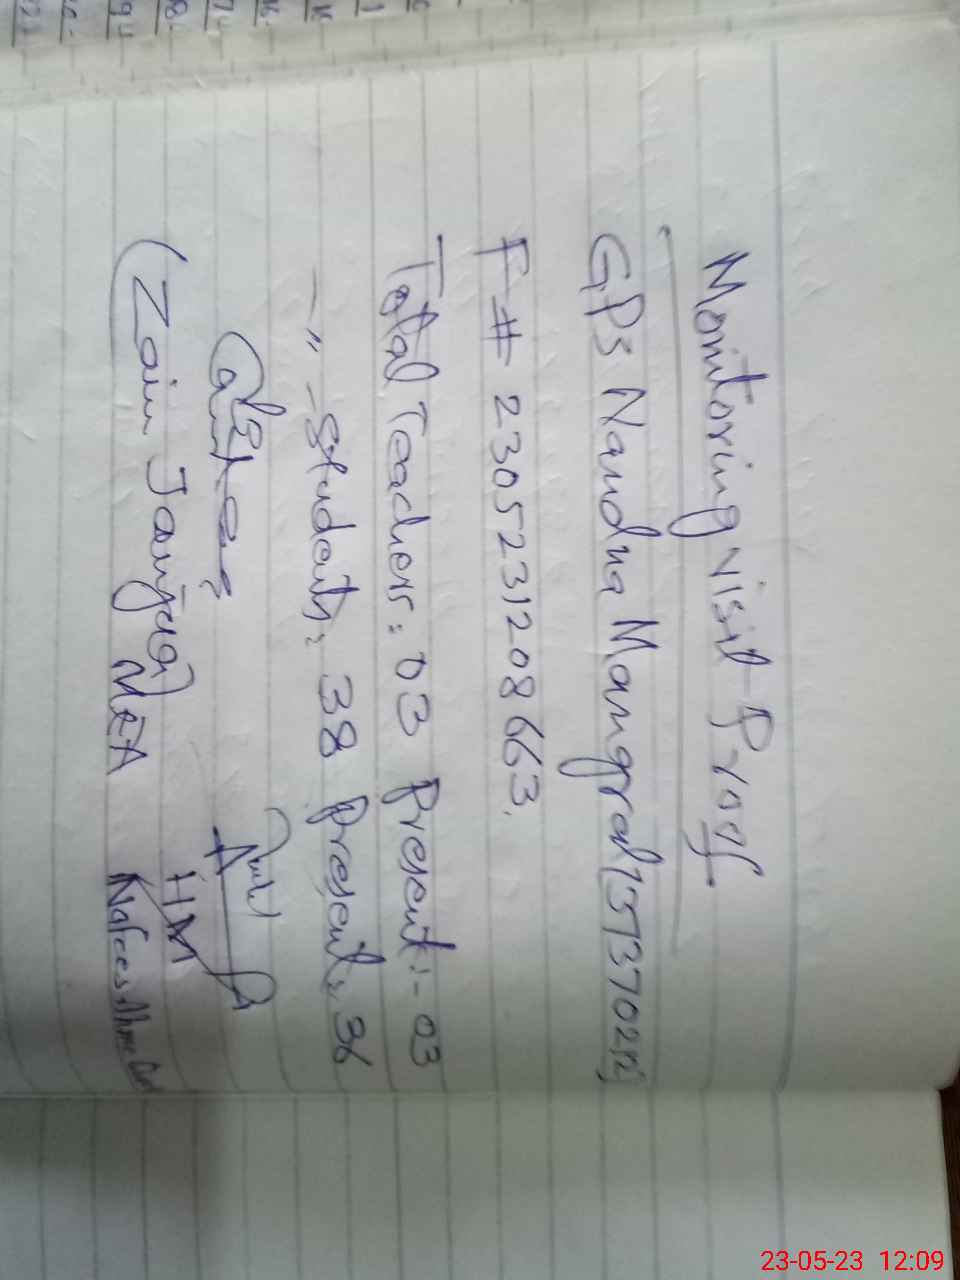 Monitoring visit Proof
GPS Nandna Mangral
F# 2305231208663.
Total Teachers: 03 Present:- 03
-"- Students: 38 Present: 36
(Zain Janjua)
MEA
HM
Nafees Ahme
23-05-23 12:09